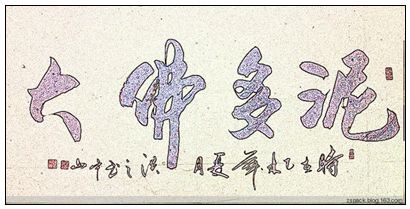 泥多佛大
時在乙未年夏月
zspack.blog.163.com